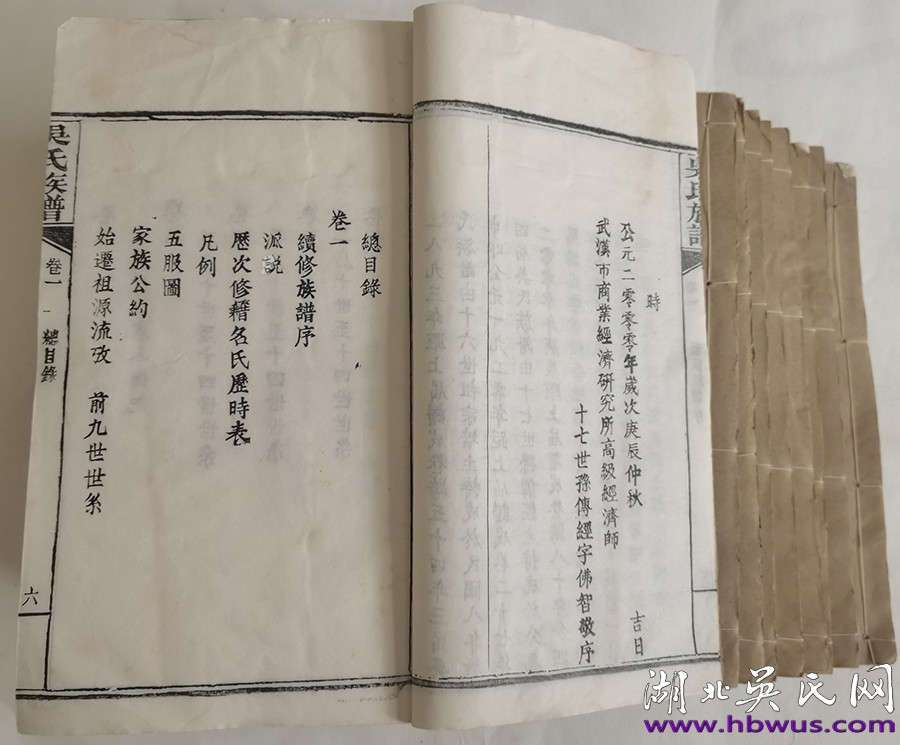 時
公元二零零零年歲次庚辰仲秋 吉日
武漢市商業經濟研究所高級經濟師
十七世孫傳經字佛智敬序
總目錄
卷一
續修族譜序
派説
歷次修籍名氏歷時表
凡例
五服圖
家族公約
始遷祖源流攷 前九世世系
吳氏族譜
卷一
總目錄
六
湖北吴氏网
www.hbwus.com